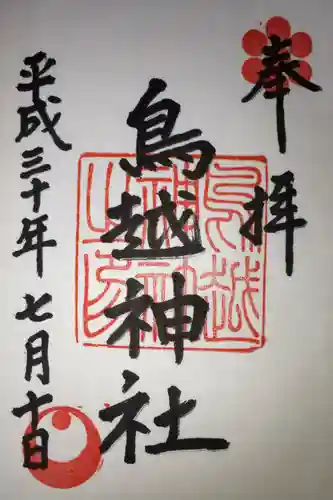 奉拝
鳥越神社
平成三十年七月十日
鳥越
神社
之印